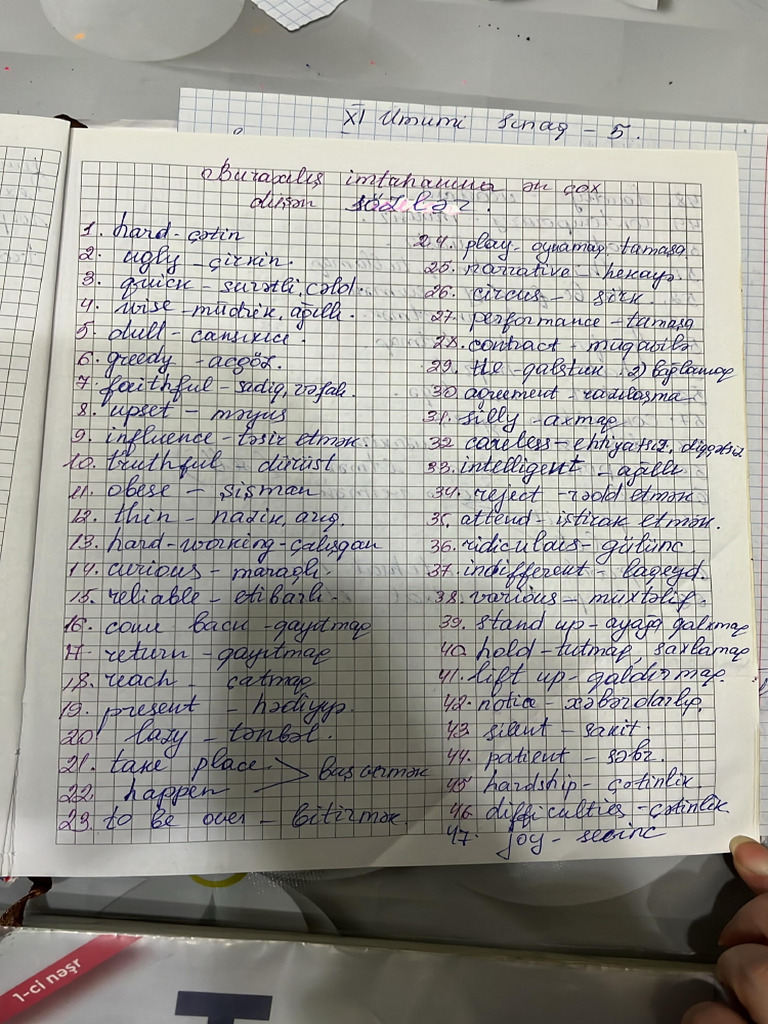 XI Ümumi Sınaq - 5.
Buraxılış imtahanına ən çox
düşən sözlər.
1. hard - çətin
2. ugly - çirkin.
3. quick - sürətli, cəld.
4. wise - müdrik, ağıllı.
5. dull - cansıxıcı.
6. greedy - acgöz.
7. faithful - sadiq, vəfalı.
8. upset - məyus
9. influence - təsir etmək.
10. truthful - dürüst
11. obese - şişman
12. thin - nazik, arıq.
13. hard-working - çalışqan
14. curious - maraqlı.
15. reliable - etibarlı.
16. come back - qayıtmaq
17. return - qayıtmaq
18. reach - çatmaq
19. present - hədiyyə.
20. lazy - tənbəl.
21. take place.
22. happen
baş vermək
23. to be over - bitirmək.
24. play - oynamaq, tamaşa
25. narrative - hekayə.
26. circus - sirk.
27. performance - tamaşa
28. contract - müqavilə
29. the - qalstuk. 2) bağlamaq
30. agreement - razılaşma
31. silly - axmaq
32. careless - ehtiyatsız, diqqətsiz
33. intelligent - ağıllı
34. reject - rədd etmək
35. attend - iştirak etmək.
36. ridiculous - gülünc
37. indifferent - laqeyd.
38. various - müxtəlif.
39. stand up - ayağa qalxmaq
40. hold - tutmaq, saxlamaq
41. lift up - qaldırmaq.
42. notice - xəbərdarlıq.
43. silent - sakit.
44. patient - səbr.
45. hardship - çətinlik
46. difficulties - çətinlik
47. joy - sevinc
1-ci nəşr